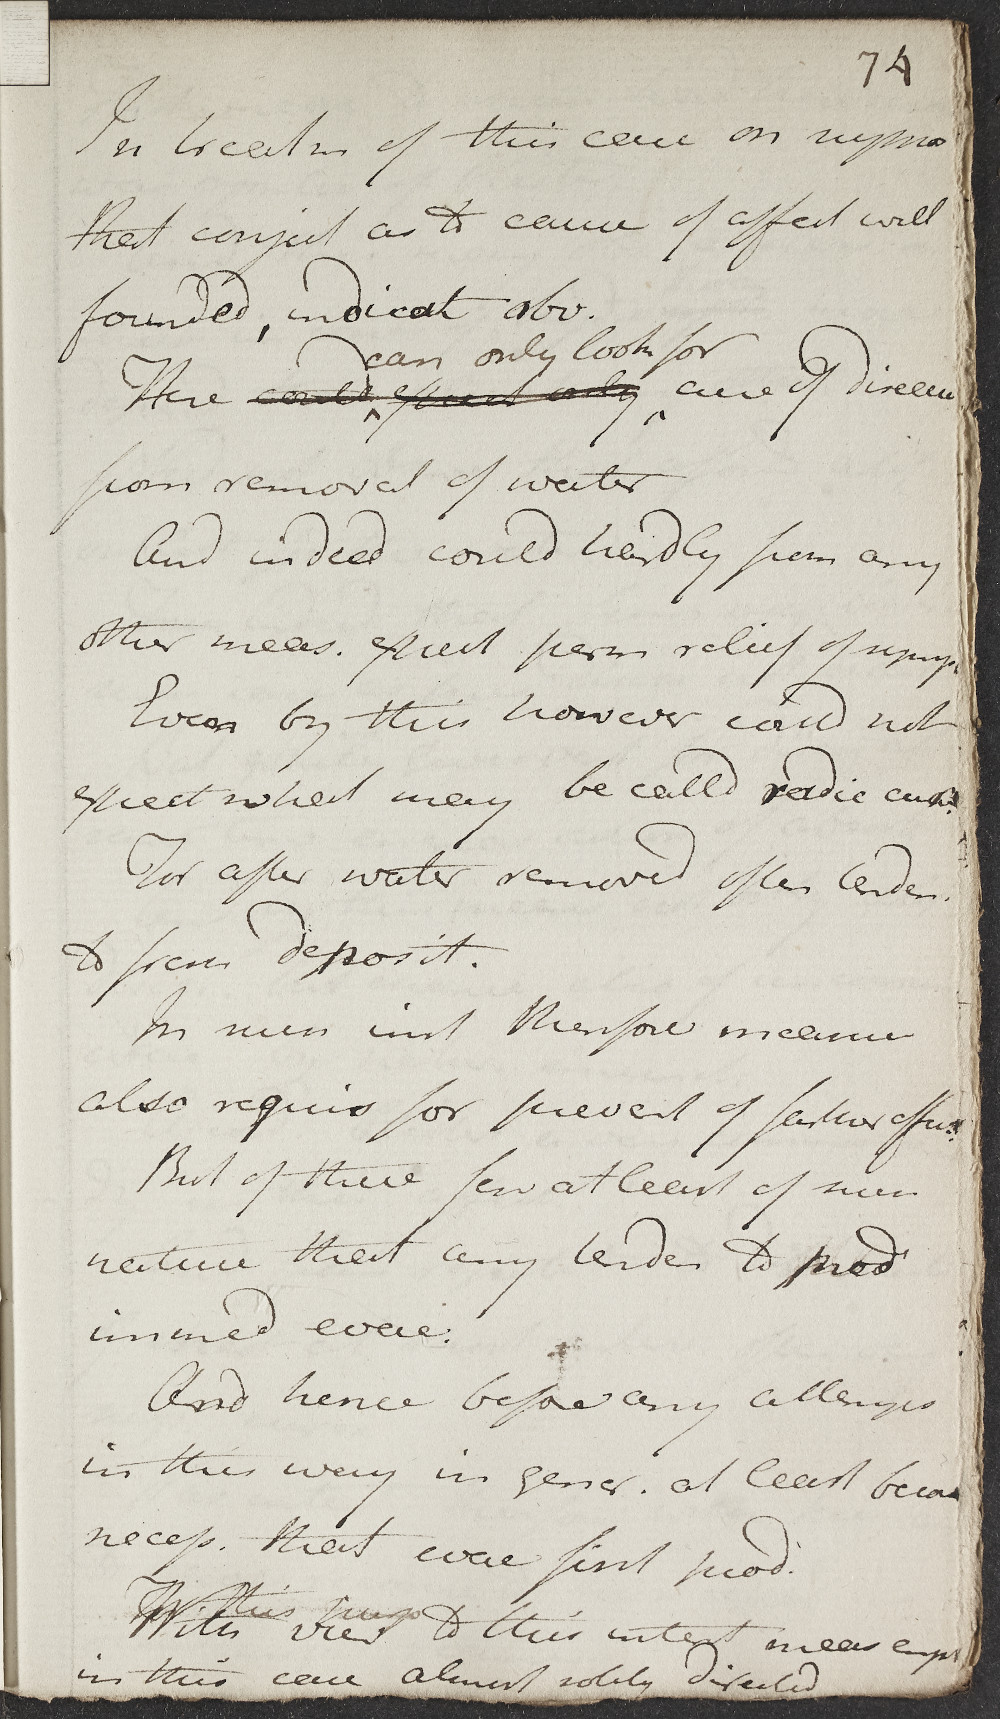 74
In treatm of this case on suppos
that conject as to cause of affect well
founded, indicat obv.
can only look for
Here could expect only cure of disease
from removal of water
And indeed could hardly from any
other meas. expect perm relief of symp
Even by this however could not
expect what may be calld radic cure
For after water removed often tenden.
to fresh deposit.
In such inst therefore measure
also requis for prevent of farther effus.
But of these few at least of such
nature that any tenden to prod
immed evac.
And hence before any attempt
in this way in gener. at least becom
necess. that evac first prod.
With view to this intent meas empl
in this case almost solely directed